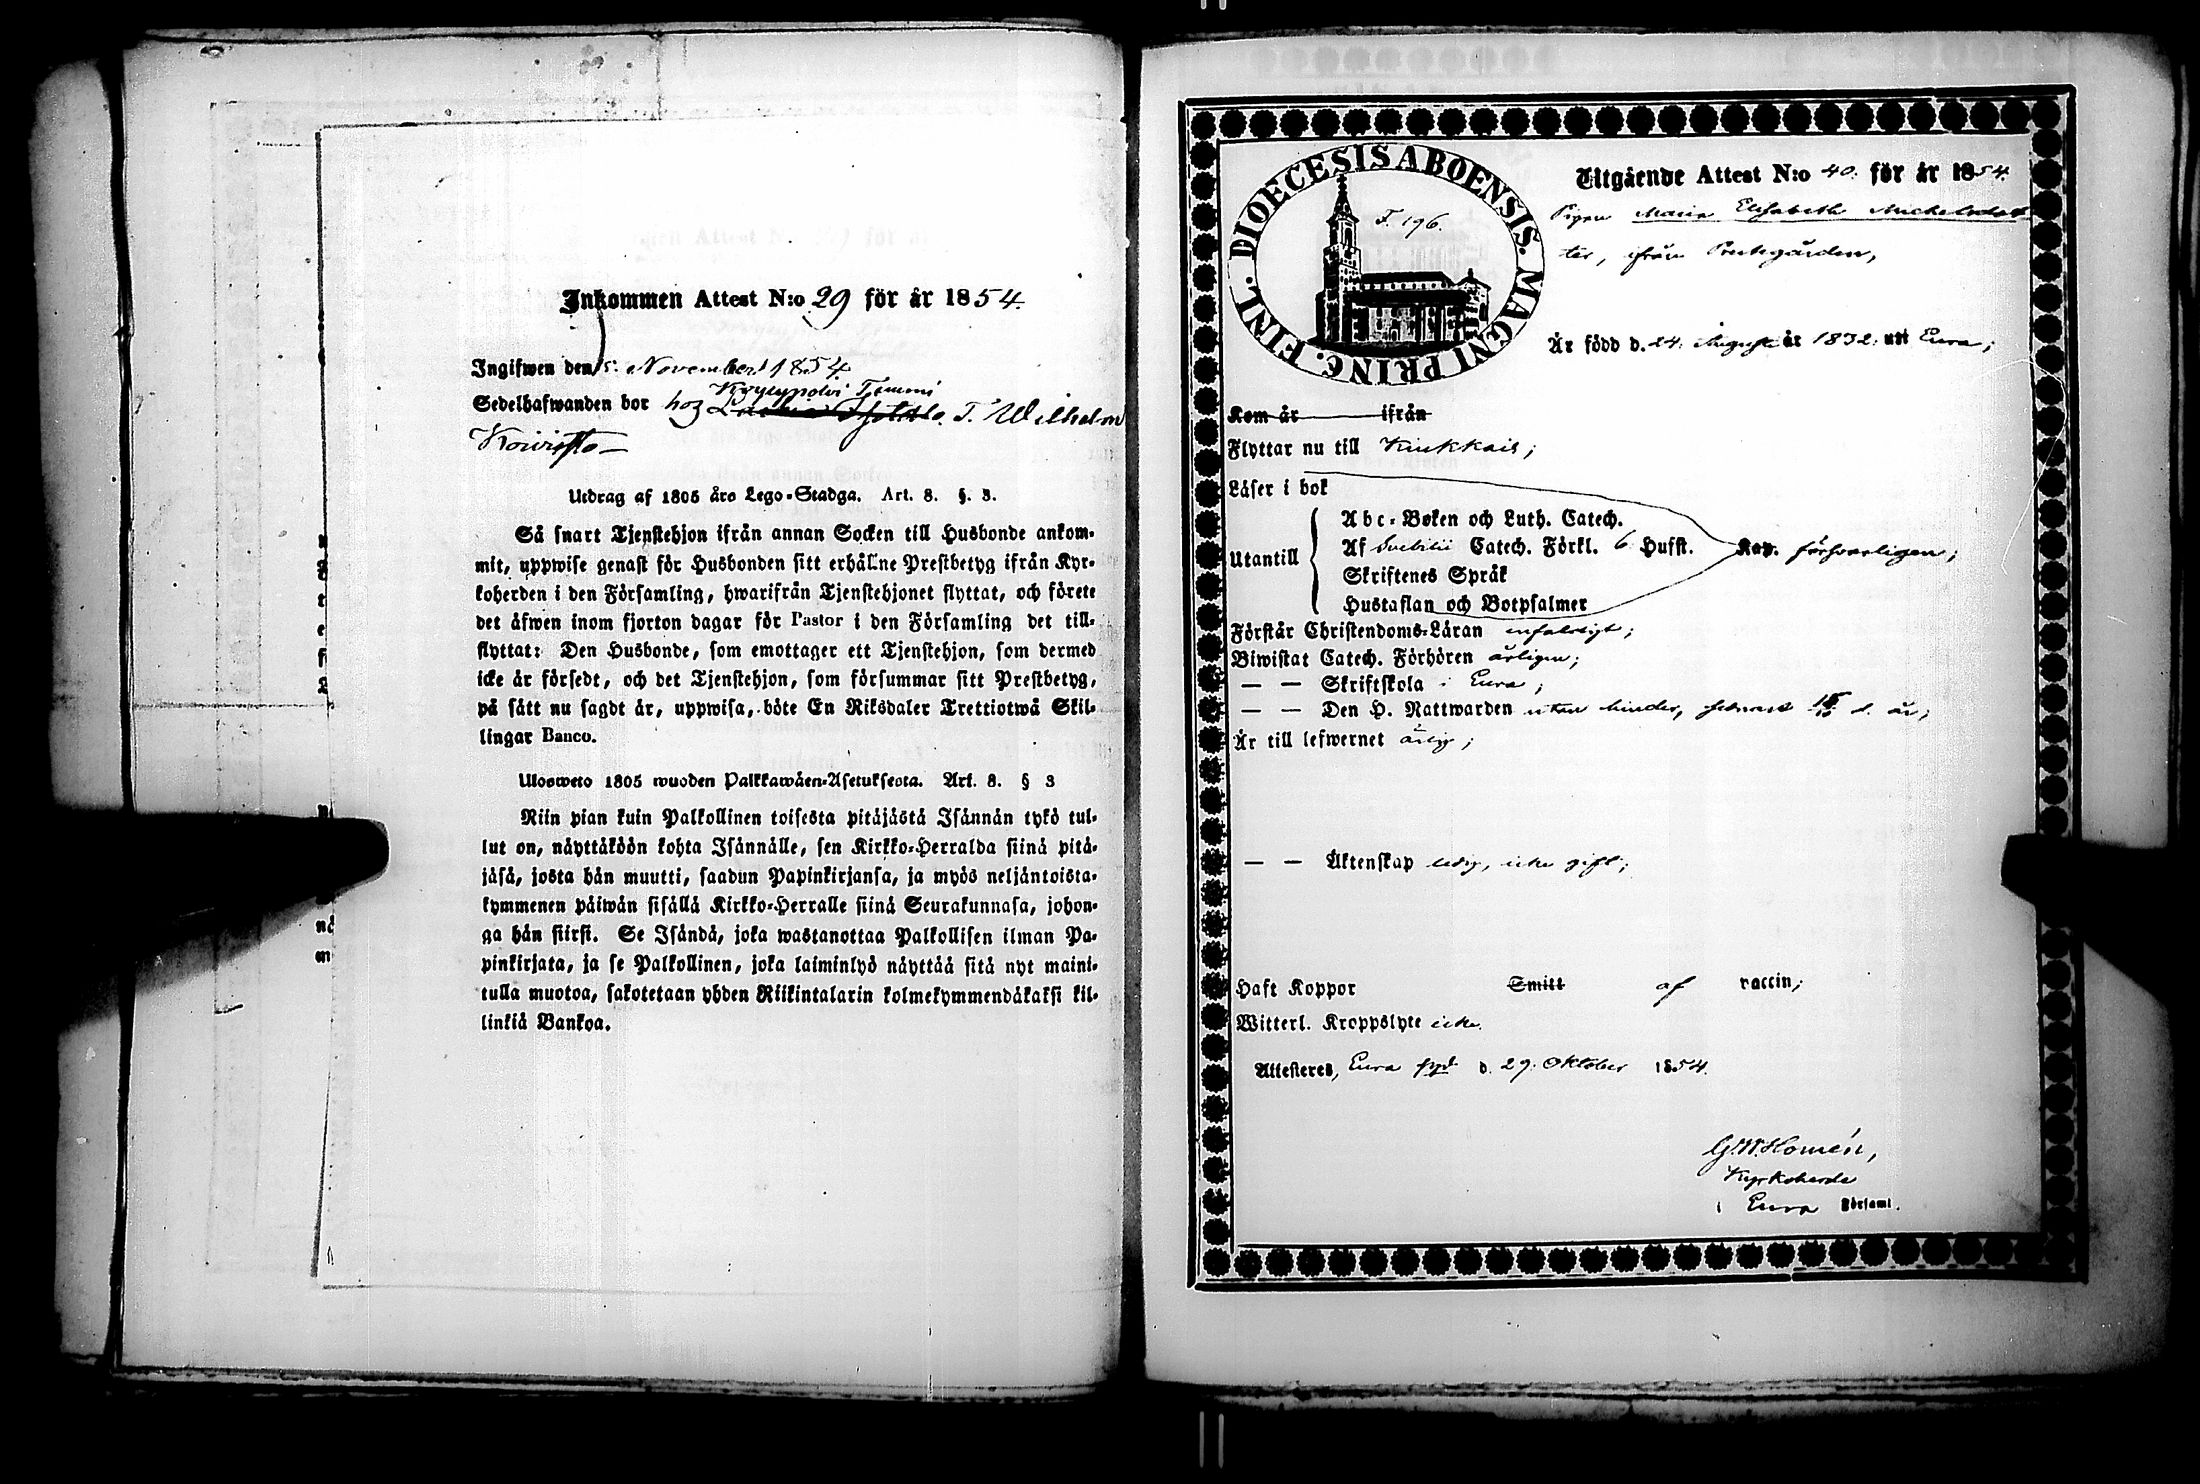 Inkommen Attest N:o 29 för år 1854.
Ingifwen den 5. November 1854
Köyлypolvi Tommi
Sedelhafwanden bor hos T. Wilhelm
Koivisto
Utdrag af 1805 års Lego-Stadga. Art. 8. §. 3.
Så snart Tjenstehjon ifrån annan Socken till Husbonde ankom-
mit, uppwise genast för Husbonden sitt erhållne Prestbetyg ifrån Kyr-
koherden i den Församling, hwarifrån Tjenstehjonet flyttat, och förete
det äfwen inom fjorton dagar för Pastor i den Församling det till-
flyttat: Den Husbonde, som emottager ett Tjenstehjon, som dermed
icke är försedt, och det Tjenstehjon, som försummar sitt Prestbetyg,
på sätt nu sagdt är, uppwisa, böte En Riksdaler Trettiotwå Skil-
lingar Banco.
Ulosweto 1805 wuoden Palkkawäen-Asetuksesta. Art. 8. § 3
Niin pian kuin Palkollinen toisesta pitäjästä Isännän tykö tul-
lut on, näyttäköön kohta Isännälle, sen Kirkko-Herralda siinä pitä-
jäsä, josta hän muutti, saadun Papinkirjansa, ja myös neljäntoista-
kymmenen päiwän sisällä Kirkko-Herralle siinä Seurakunnasa, johon-
ga hän siirsi. Se Isändä, joka wastanottaa Palkollisen ilman Pa-
pinkirjata, ja se Palkollinen, joka laiminlyö näyttää sitä nyt maini-
tulla muotoa, sakotetaan yhden Riikintalarin kolmekymmendäkaksi kil-
linkiä Bankoa.
DIOECESIS ABOENSIS. MAGNI PRINC. FINL.
F. 196.
Utgående Attest N:o 40. för år 1854.
Pigan Maria Elisabeth Michelsdot
ter, ifrån Prestegården,
Är född d. 24. Augusti år 1832. uti Eura;
Kom år ifrån
Flyttar nu till Kiukkais;
Läser i bok
Utantill
Abc-Boken och Luth. Catech.
Af Svebilii Catech. Förkl. 6 Hufst. Kap. försvarligen;
Skriftenes Språk
Hustaflan och Botpsalmer
Förstår Christendoms-Läran enfaldigt;
Biwistat Catech. Förhören årligen;
— — Skriftskola i Eura;
— — Den H. Nattwarden utan hinder, senast d. år;
Är till lefwernet ärlig;
— — Äktenskap ledig, icke gift;
Haft Koppor Smitt af vaccin;
Witterl. Kroppslyte icke.
Attesteres, Eura d. 29. Oktober 1854.
G. W. Homén,
Kyrkoherde
i Eura Församl.